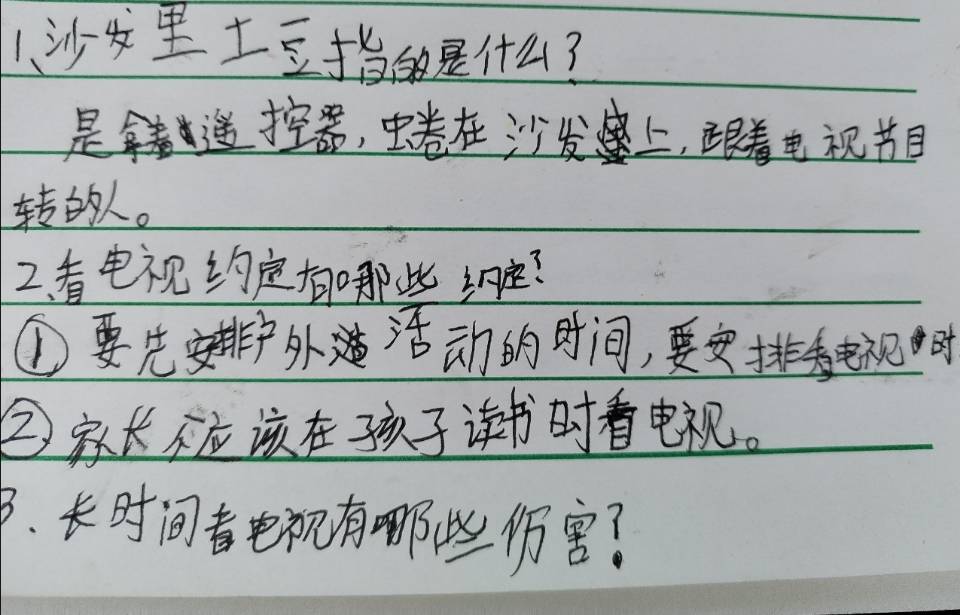 1、沙发里土豆指的是什么?
是拿着遥控器,蜷在沙发上,跟着电视节目
转的人。
2、看电视约定有哪些约定?
① 要先安排户外活动的时间,要安排看电视时
② 家长不应该在孩子读书时看电视。
3. 长时间看电视有哪些伤害?